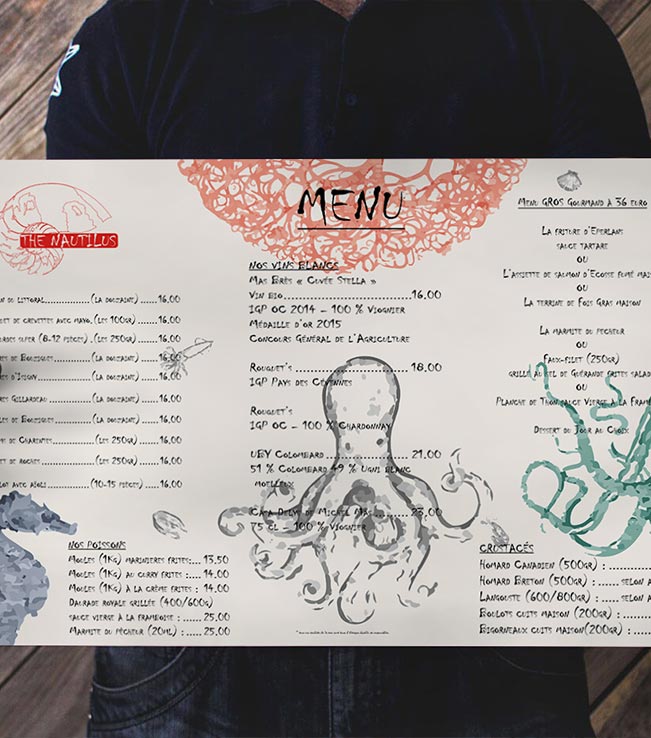 THE NAUTILUS
DU LITTORAL (LA DOUZAINE) 16,00
DE CREVETTES AVEC MAYO. (LES 100GR) 16,00
SUPER (8-12 PIÈCES) . (LES 250GR) 16,00
DE BOUZIGUES (LA DOUZAINE) 16,00
D'ISIGNY (LA DOUZAINE) 16,00
GILLARDEAU (LA DOUZAINE) 16,00
DE BOUZIGUES (LA DOUZAINE) 16,00
DE CHARENTES (LES 250GR) 16,00
DE ROCHES (LES 250GR) 16,00
AVEC AÏOLI (10-15 PIÈCES) 16,00
NOS POISSONS
MOULES (1KG) MARINIERES FRITES:... 13.50
MOULES (1KG) AU CURRY FRITES : .... 14.00
MOULES (1KG) À LA CRÈME FRITES : 14.00
DAURADE ROYALE GRILLÉE (400/600G)
SAUCE VIERGE À LA FRAMBOISE : ..... 25.00
MARMITE DU PÊCHEUR (20ML) : ...... 25.00
MENU
NOS VINS BLANCS
MAS BRÈS « CUVÉE STELLA »
VIN BIO 16,00
IGP OC 2014 - 100 % VIOGNIER
MÉDAILLE D'OR 2015
CONCOURS GÉNÉRAL DE L'AGRICULTURE
ROUQUET'S 18,00
IGP PAYS DES CÉVENNES
ROUQUET'S
IGP OC - 100 % CHARDONNAY
UBY COLOMBARD 21.00
51 % COLOMBARD 49 % UGNI BLANC
MOELLEUX
MICHEL MAS 23,00
75 CL - 100 % VIOGNIER
MENU GROS GOURMAND À 36 EURO
LA FRITURE D'EPERLANS
SAUCE TARTARE
OU
L'ASSIETTE DE SALMON D'ECOSSE FUMÉ
OU
LA TERRINE DE FOIS GRAS MAISON
LA MARMITE DU PECHEUR
OU
FAUX-FILET (250GR)
GRILLÉ AU SEL DE GUÉRANDE FRITES
OU
PLANCHE DE THON SAUCE VIERGE À LA
DESSERT DU JOUR AU CHOIX
CRUSTACÉS
HOMARD CANADIEN (500GR) : ......
HOMARD BRETON (500GR) : ...... SELON
LANGOUSTE (600/800GR) : ...... SELON
BOULOTS CUITS MAISON (200GR) : ......
BIGORNEAUX CUITS MAISON(200GR) : ......